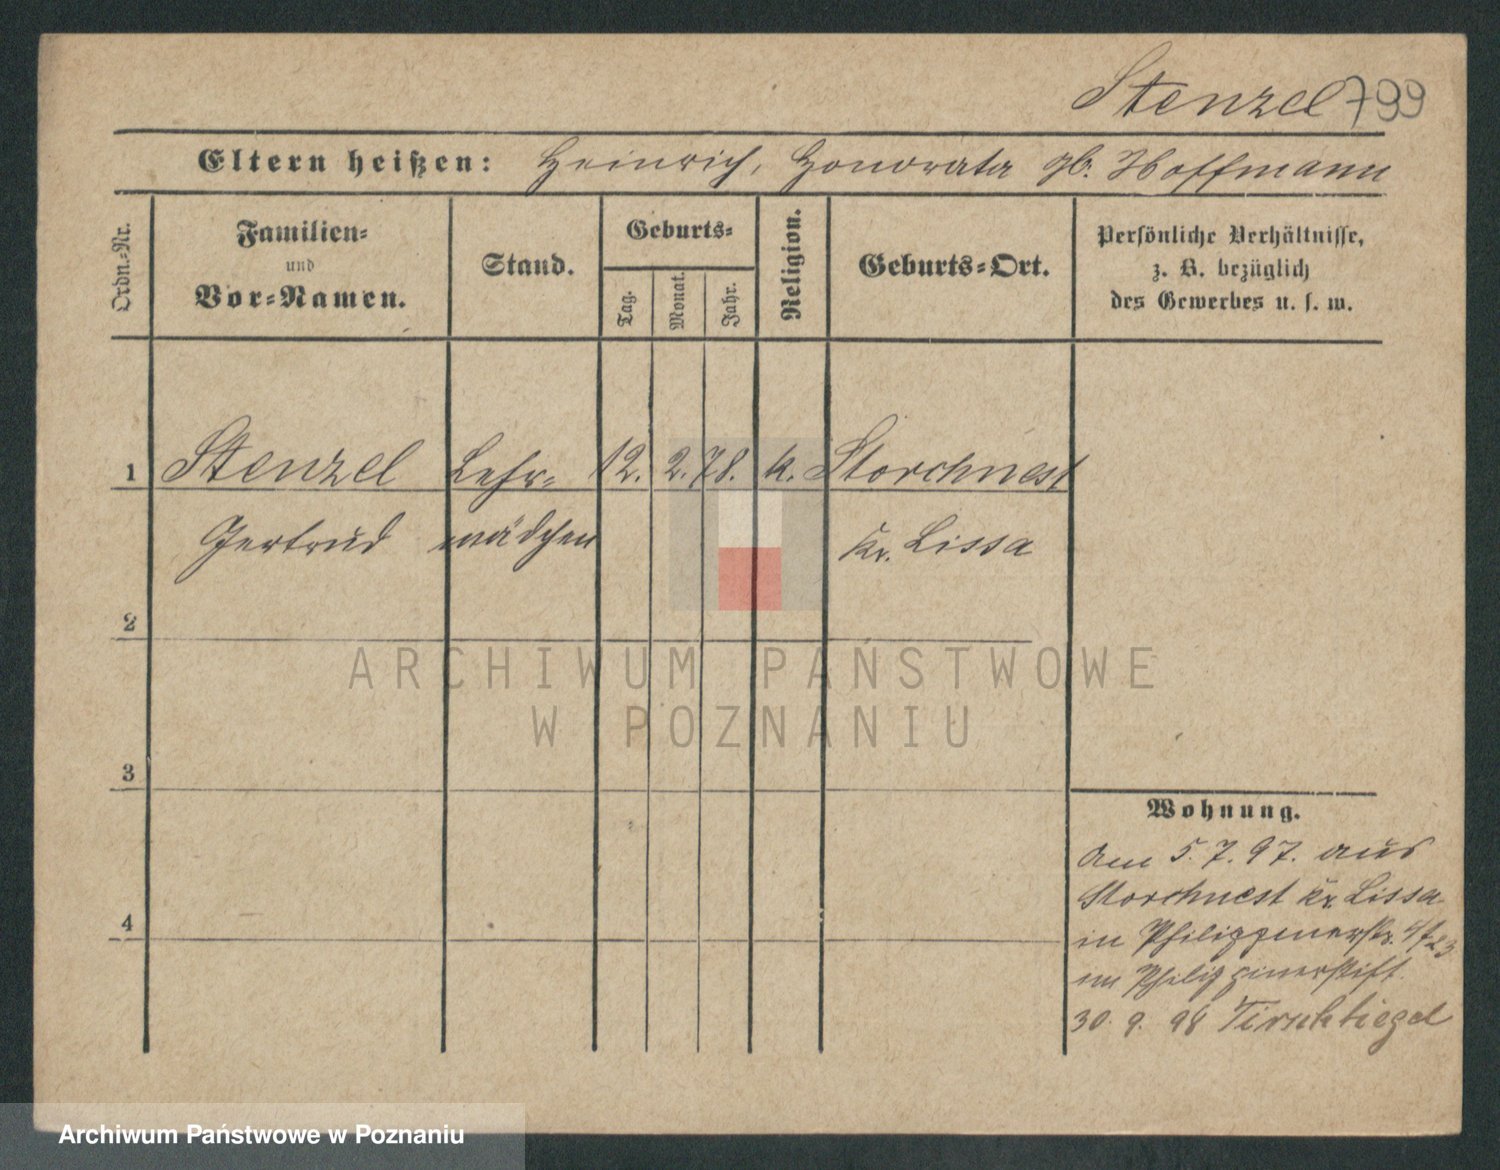 Stenzel 799
Eltern heißen: Heinrich, Honorata gb. Hoffmann
Ordn.-Nr.
Familien-
und
Vor-Namen.
Stand.
Geburts-
Tag.
Monat.
Jahr.
Religion.
Geburts-Ort.
Persönliche Verhältnisse,
z. B. bezüglich
des Gewerbes u. s. w.
1 Stenzel Lehr- 12. 2. 78. k. Storchnest
Gertrud mädchen Kr. Lissa
2
3
4
Wohnung.
Am 5.7.97. aus
Storchnest Kr. Lissa
in Philippinerstr.
im Philippinerstift.
30. 9. 98 Tirschtiegel
ARCHIWUM PAŃSTWOWE
W POZNANIU
Archiwum Państwowe w Poznaniu